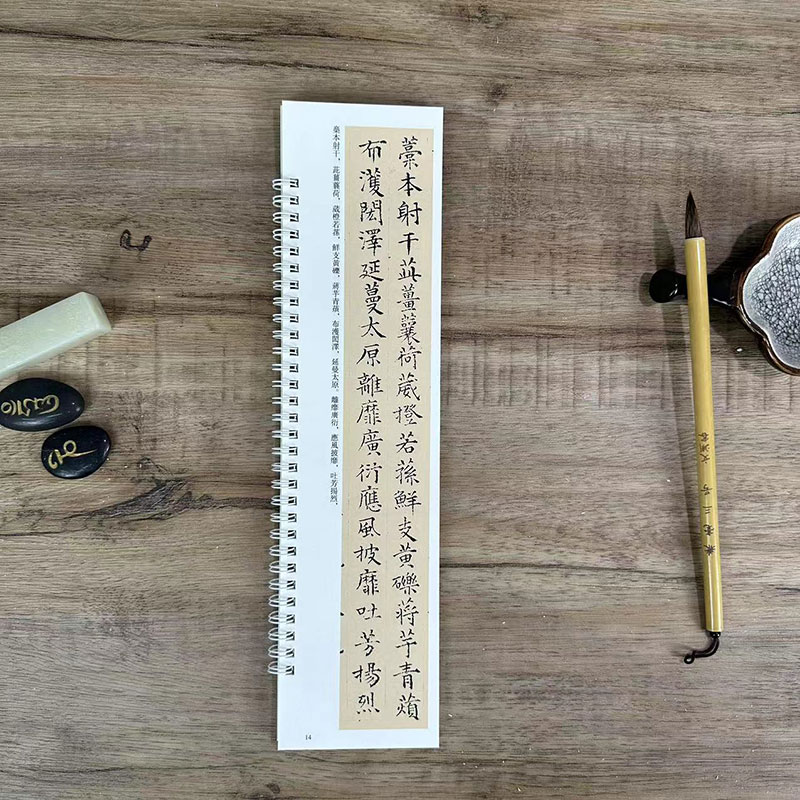 藁本射干茈薑蘘荷葴橙若蓀鮮支黃礫蔣芧青薠
布濩閎澤延蔓太原離靡廣衍應風披靡吐芳揚烈
槀本射干，茈薑蘘荷，葴橙若蓀，鮮支黃礫，蔣芧青薠，布濩閎澤，延曼太原，離靡廣衍，應風披靡，吐芳揚烈，
14